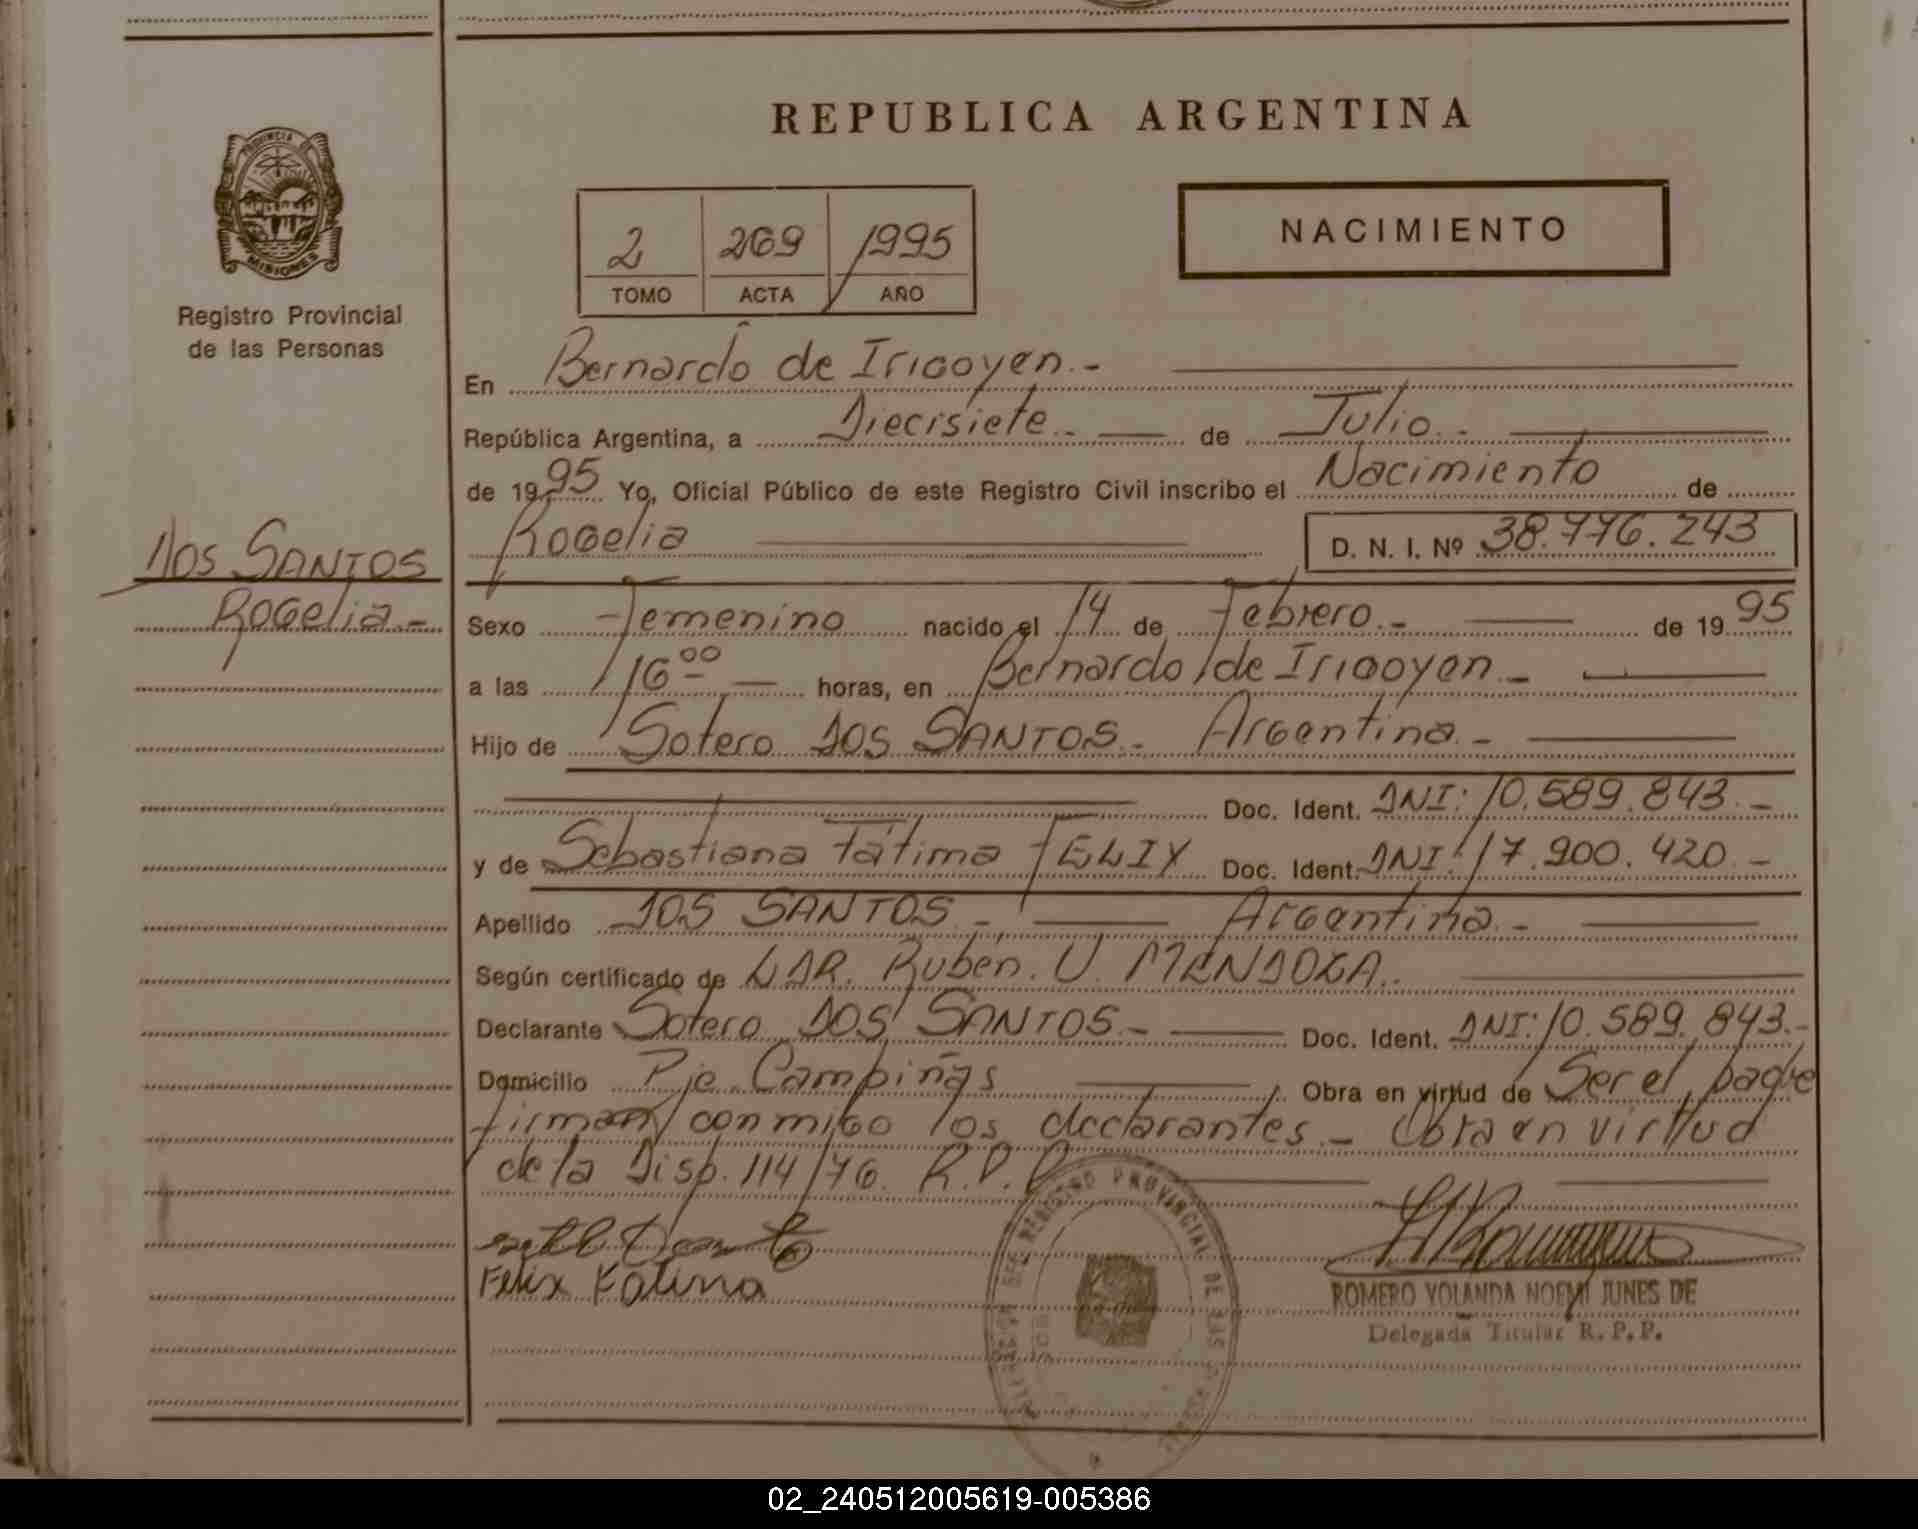 REPUBLICA ARGENTINA
PROVINCIA DE
MISIONES
Registro Provincial
de las Personas
2 269 1995
TOMO ACTA AÑO
NACIMIENTO
En Bernardo de Irigoyen.-
República Argentina, a Diecisiete.- de Julio.-
de 1995 Yo, Oficial Público de este Registro Civil inscribo el Nacimiento de
Rogelia D. N. I. Nº 38.776.243
DOS SANTOS
Rogelia.-
Sexo Femenino nacido el 14 de Febrero.- de 1995
a las 16 00 horas, en Bernardo de Irigoyen.-
Hijo de Sotero DOS SANTOS.- Argentina.-
Doc. Ident. DNI: 10.589.843.-
y de Sebastiana Fátima FELIX Doc. Ident. DNI: 17.900.420.-
Apellido DOS SANTOS.- Argentina.-
Según certificado de L DR. Ruben. U. MENDOZA.
Declarante Sotero DOS SANTOS.- Doc. Ident. DNI: 10.589.843.-
Domicilio Pje Campiñas Obra en virtud de Ser el padre
firman conmigo los declarantes.- Obra en virtud
de la Disp. 114/76. R.P.P
Felix Fatima
REGISTRO PROVINCIAL DE LAS
ROMERO YOLANDA NOEMI JUNES DE
Delegada Titular R.P.P.
02_240512005619-005386